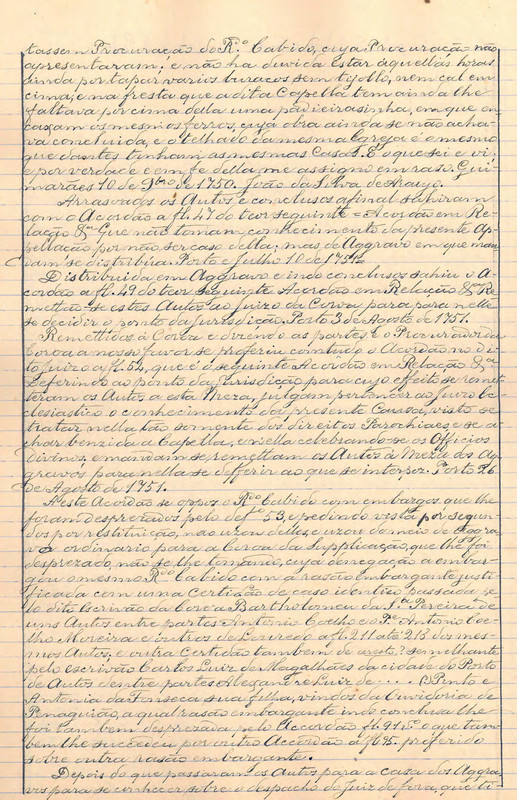 tassem Procuração do R.º Cabido, cuja Procuração não
apresentaram; e não ha duvida estar aquellas horas
ainda por tapar varios buracos sem tijollo, nem cal em
cima, e na fresta que a dita Capella tem ainda lhe
faltava por cima della uma padieirasinha, em que en
caixam os mesmos ferros, cuja obra ainda se não acha-
va concluida, e o telhado da mesma largo, e é o mesmo
que dantes tinham as mesmas casas. É o que sei e vi,
e por verdade e em fé della me assigno em raso. Gui-
marães 10 de 9bro de 1750. João da Silva de Araujo.
Arrasoados os Autos e conclusos afinal sahiram
com o Acordão a fl. 47 do teor seguinte = Acordão em Re-
lação &ª Que não tomam conhecimento da presente Ap-
pellação por não ser caso della; mas de Aggravo em que man
dam se distribúa. Porto e Julho 10 de 1751.
Distribuida em Aggravo e indo conclusos sahiu o A-
cordão a fl. 49 do teor seguinte Acordão em Relação &ª Re-
mettão-se estes Autos ao juizo da Coroa, para nelle
se decidir o ponto da jurisdicção. Porto 3 de Agosto de 1751.
Remettidos á Coroa e dizendo as partes, e o Procurador da
Coroa a nosso favor se proferiu comtudo o Acordão no di-
to juizo a fl. 52, que é o seguinte Acordão em Relação &ª
Deferindo ao ponto da jurisdicção para cujo effeito se remet-
teram os Autos a esta Meza, julgam pertencer ao juizo Ec-
clesiastico o conhecimento da presente Causa, visto se
tratar nella tão somente dos direitos Parochiaes e se a-
char benzida a Capella, e nella celebrando-se os Officios
Divinos, e mandam se remettam os Autos á Meza dos Ag-
gravos para nella se defferir ao que se interpoz. Porto 26
de Agosto de 1751.
A este Acordão se oppoz o R.do Cabido com embargos que lhe
foram despresados pelo de fl. 53, e pedindo vista por segun-
dos por restituição, não uzou delles, e uzou do meio de Aggra-
vo ordinario para a Coroa da Supplicação, que lhe foi
despresado, não se lhe tomando, cuja denegação a embar-
gou o mesmo R.do Cabido com a rasão embargante justi-
ficada com uma Certidão de caso identico passada pe-
lo dito Escrivão da Coroa Bartholomeu da S.ª Pereira de
uns Autos entre partes Antonio Coelho e P.e Antonio Co-
elho Moreira e outros de Louredo a fl. 211 até 218 dos mes-
mos Autos, e outra Certidão tambem de aresto? semelhante
pelo escrivão Carlos Luiz de Magalhães da cidade do Porto
de Autos dentre partes Alexandre Luiz de . . . . Pinto e
Antonia da Fonseca sua filha, vindos da Ouvidoria de
Penaguião, a qual rasão embargante indo conclusa lhe
foi tambem despresada pelo Accordão fl. 91 vº o que tam-
bem lhe succedeu por outro Acordão a fl. 95. proferido
sobre outra rasão embargante.
Depois do que passaram os Autos para a casa dos Aggra-
vos para se conhecer sobre o despacho do Juiz de fora, que ti